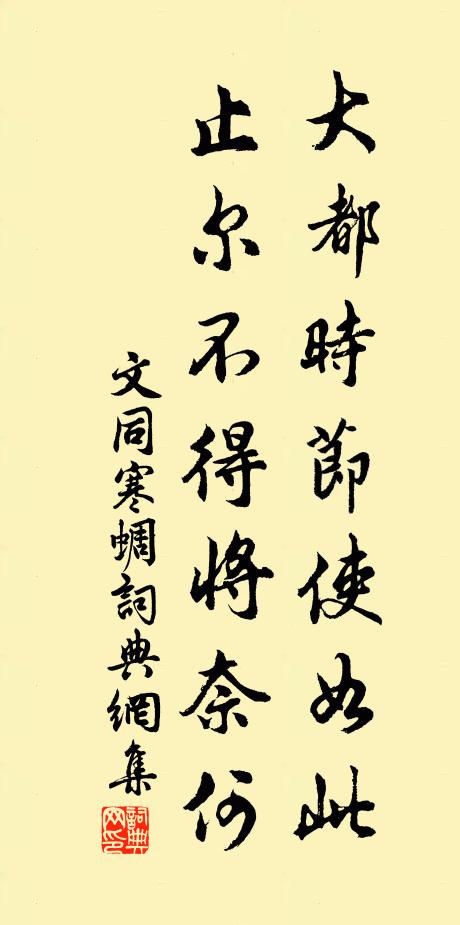 大都時節使如此
止尔不得將奈何
文同寒蜩詞典網集
詞典网印